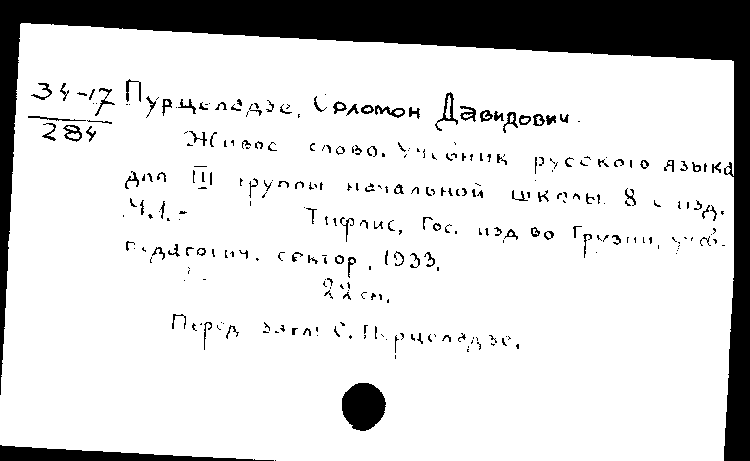 34-17
284
Пурцеладзе, Соломон Давидович.
Живое слово. Учебник русского языка
для III группы начальной школы. 8 е изд.
Ч.1.-
Тифлис, Гос. изд во Грузии, учеб.
педагогич. сектор, 1933.
22 см.
Перед загл: С. Пурцеладзе.